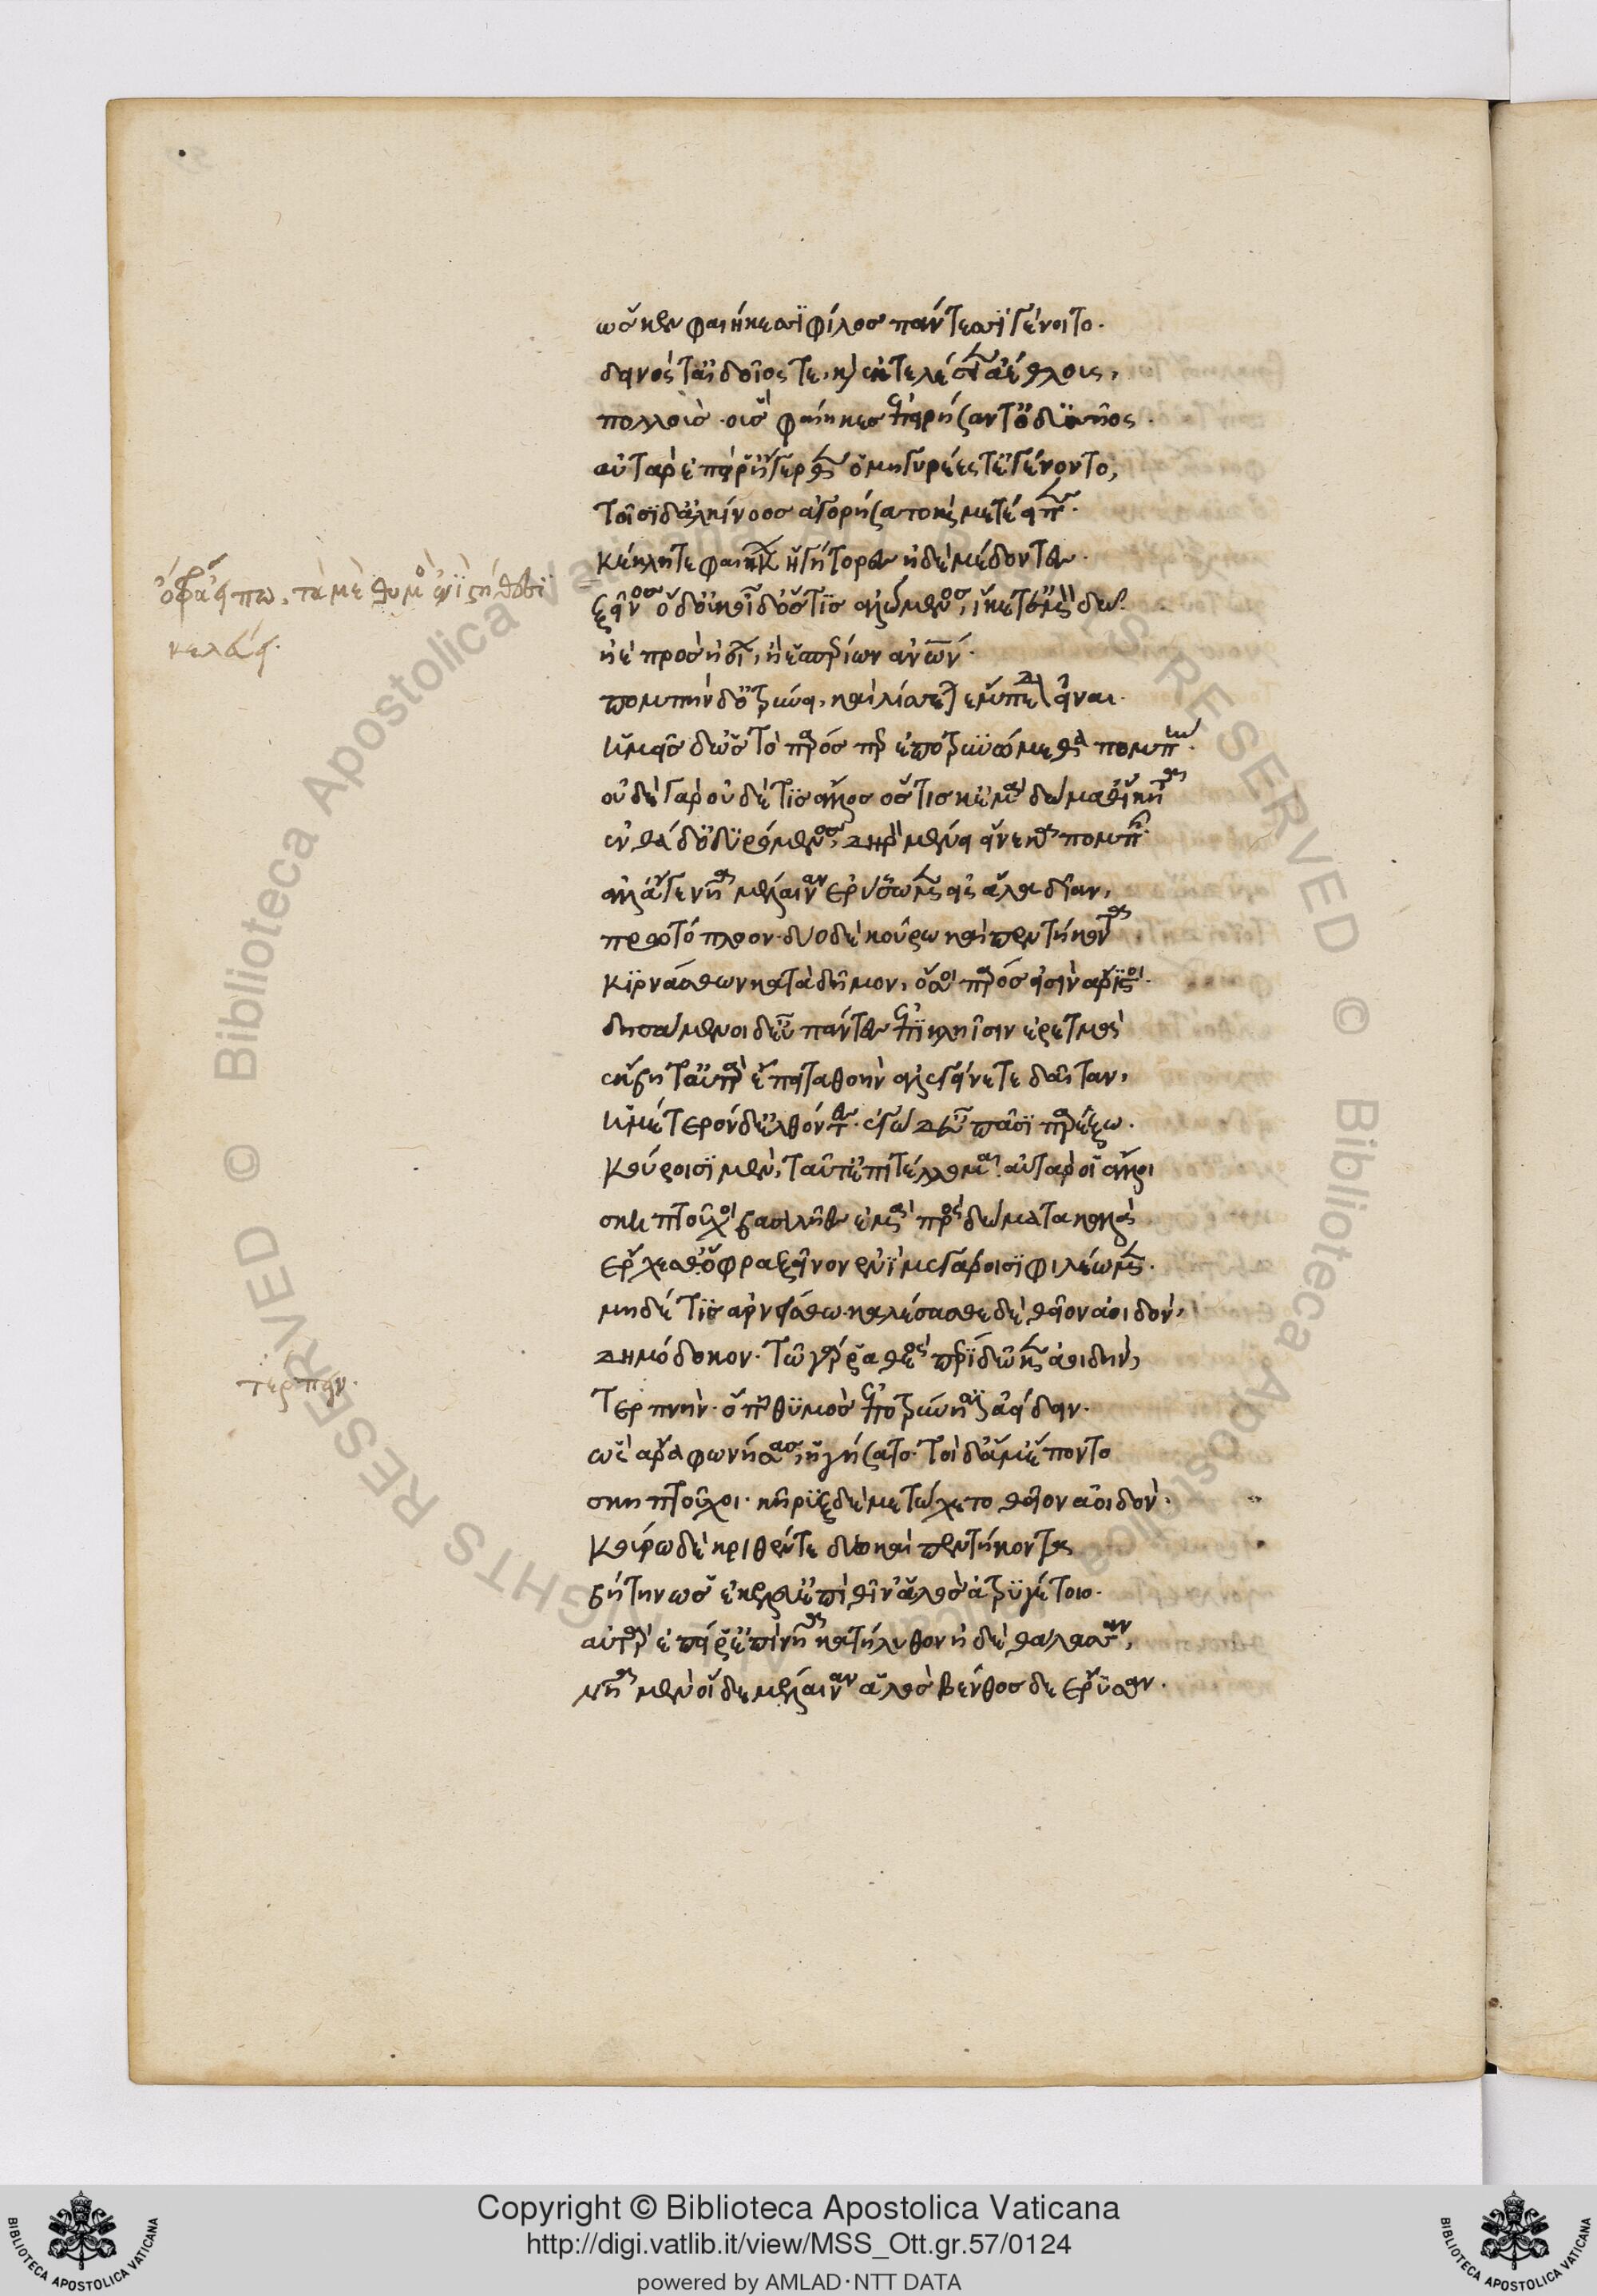 ὥς κεν φαιήκεσσι φίλος πάντεσσι γένοιτο.
δεινός τ' αἰδοῖός τε, καὶ ἐκτελέσειεν ἀέθλους,
πολλοὺς. οὓς φαίηκες ἐπειρήσαντ' ὀδυσῆος.
αὐτὰρ ἐπεί ῥ' ἤγερθεν ὁμηγυρέες τ' ἐγένοντο,
τοῖσι δ' ἀλκίνοος ἀγορήσατο καὶ μετέειπεν.
κέκλυτε φαιήκων ἡγήτορες ἠδὲ μέδοντες.
ὄφρ' εἴπω, τά με θυμὸς ἐνὶ στήθεσσι
κελεύει.
ξεῖνος ὅδ' οὐκ οἶδ' ὅστις ἀλώμενος, ἵκετ' ἐμὸν δῶ.
ἠὲ πρὸς ἠοίων, ἢ ἑσπερίων ἀνθρώπων.
πομπὴν δ' ὀτρύνει, καὶ λίσσεται ἔμπεδον εἶναι.
ἡμεῖς δ' ὡς τὸ πάρος περ ἐποτρυνώμεθα πομπήν.
οὐδὲ γὰρ οὐδέ τις ἄλλος ὅστις κ' ἐμὰ δώμαθ' ἵκηται
ἐνθάδ' ὀδυρόμενος, δηρὸν μένει εἵνεκα πομπῆς.
ἀλλ' ἄγε νῆα μέλαιναν ἐρύσσωμεν εἰς ἅλα δῖαν,
πρωτόπλοον. δύο δὲ κούρω καὶ πεντήκοντα
κρινάσθων κατὰ δῆμον, ὅσοι πάρος εἰσὶν ἄριστοι.
δησάμενοι δ' εὖ πάντες ἐπὶ κληῖσιν ἐρετμὰ
ἔκβητ' αὐτὰρ ἔπειτα θοὴν ἀλεγύνετε δαῖταν,
ἡμέτερόνδ' ἐλθόντες. ἐγὼ δ' εὖ πᾶσι παρέξω.
κούροισι μὲν, ταῦτ' ἐπιτέλλομαι. αὐτὰρ οἱ ἄλλοι
σκηπτοῦχοι βασιλῆες ἐμὰ πρὸς δώματα καλὰ
ἔρχεσθ' ὄφρα ξεῖνον ἐνὶ μεγάροισι φιλέωμεν.
μηδέ τις ἀρνείσθω. καλέσασθε δὲ θεῖον ἀοιδὸν,
δημόδοκον. τῷ γάρ ῥα θεὸς περὶ δῶκεν ἀοιδὴν,
τέρπειν.
τερπνὴν. ὅππῃ θυμὸς ἐποτρύνῃσιν ἀείδειν.
ὣς ἄρα φωνήσας, ἡγήσατο. τοὶ δ' ἅμ' ἕποντο
σκηπτοῦχοι. κῆρυξ δὲ μετῴχετο θεῖον ἀοιδὸν.
κούρω δὲ κριθέντε δύο καὶ πεντήκοντα
βήτην ὡς ἐκέλευσ' ἐπὶ θῖν' ἁλὸς ἀτρυγέτοιο.
αὐτὰρ ἐπεί ῥ' ἐπὶ νῆα κατήλυθον ἠδὲ θάλασσαν,
νῆα μὲν οἵδε μέλαιναν ἁλὸς βένθοσδε ἔρυσσαν.
Copyright © Biblioteca Apostolica Vaticana
http://digi.vatlib.it/view/MSS_Ott.gr.57/0124
powered by AMLAD·NTT DATA